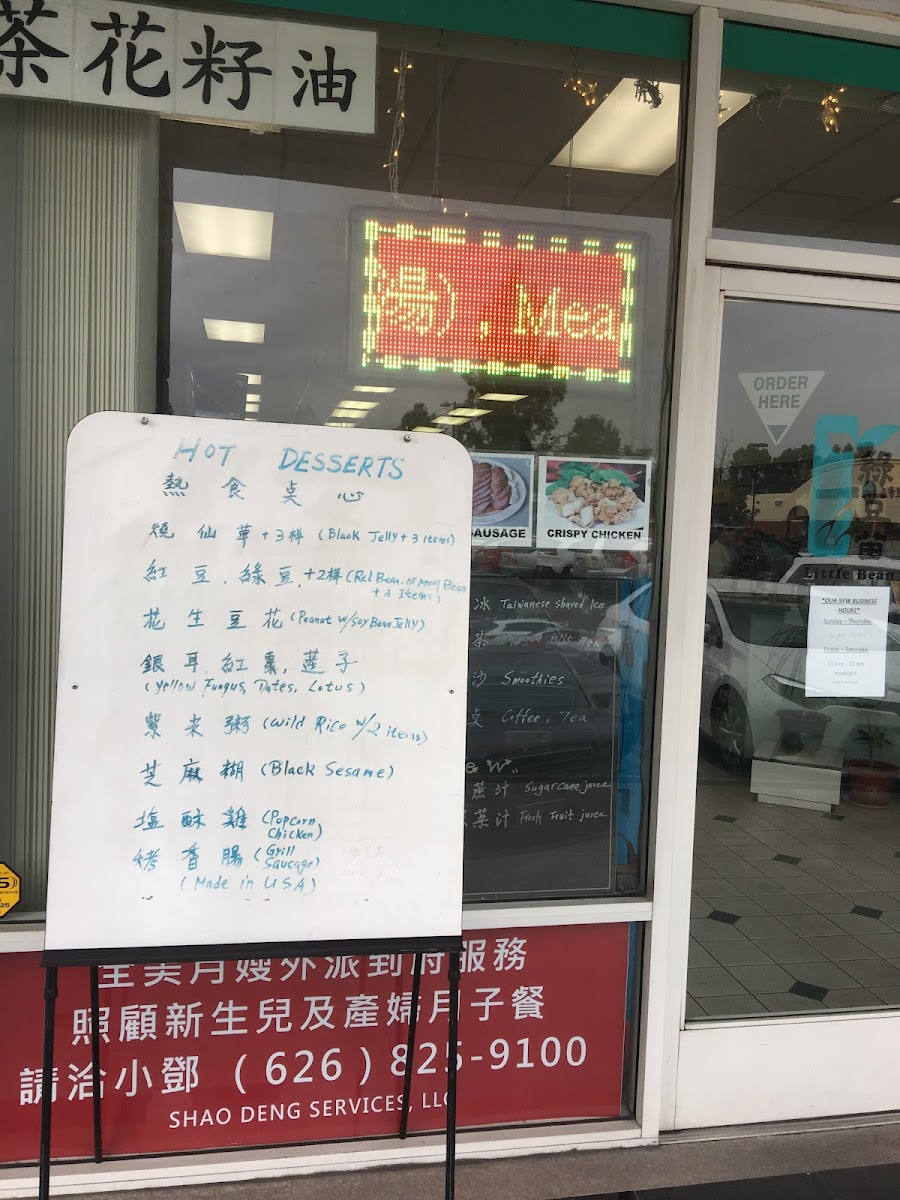 茶花籽油
湯), Mea
ORDER
HERE
SAUSAGE
CRISPY CHICKEN
HOT DESSERTS
熱食桌心
燒仙草+3樣 (Black Jelly + 3 items)
紅豆.綠豆.+2樣 (Red Bean, or Mung Bean
+2 Items)
花生豆花 (Peanut w/Soy Bean Jelly)
銀耳,紅棗,蓮子
(Yellow Fungus, Dates, Lotus)
紫米粥 (Wild Rice w/2 items)
芝麻糊 (Black Sesame)
塩酥雞 (Popcorn
Chicken)
烤香腸 (Grill
Sausage)
(Made in USA)
冰 Taiwanese Shaved Ice
茶 Milk Tea
沙 Smoothies
Coffee, Tea
蔗汁 Sugarcane juice
菓汁 Fresh Fruit juice
綠豆
Little Bean
"OUR NEW BUSINESS
HOURS"
Sunday – Thursday:
Friday – Saturday:
midnight
全美月嫂外派到府服務
照顧新生兒及產婦月子餐
請洽小鄧 (626) 825-9100
SHAO DENG SERVICES, LLC